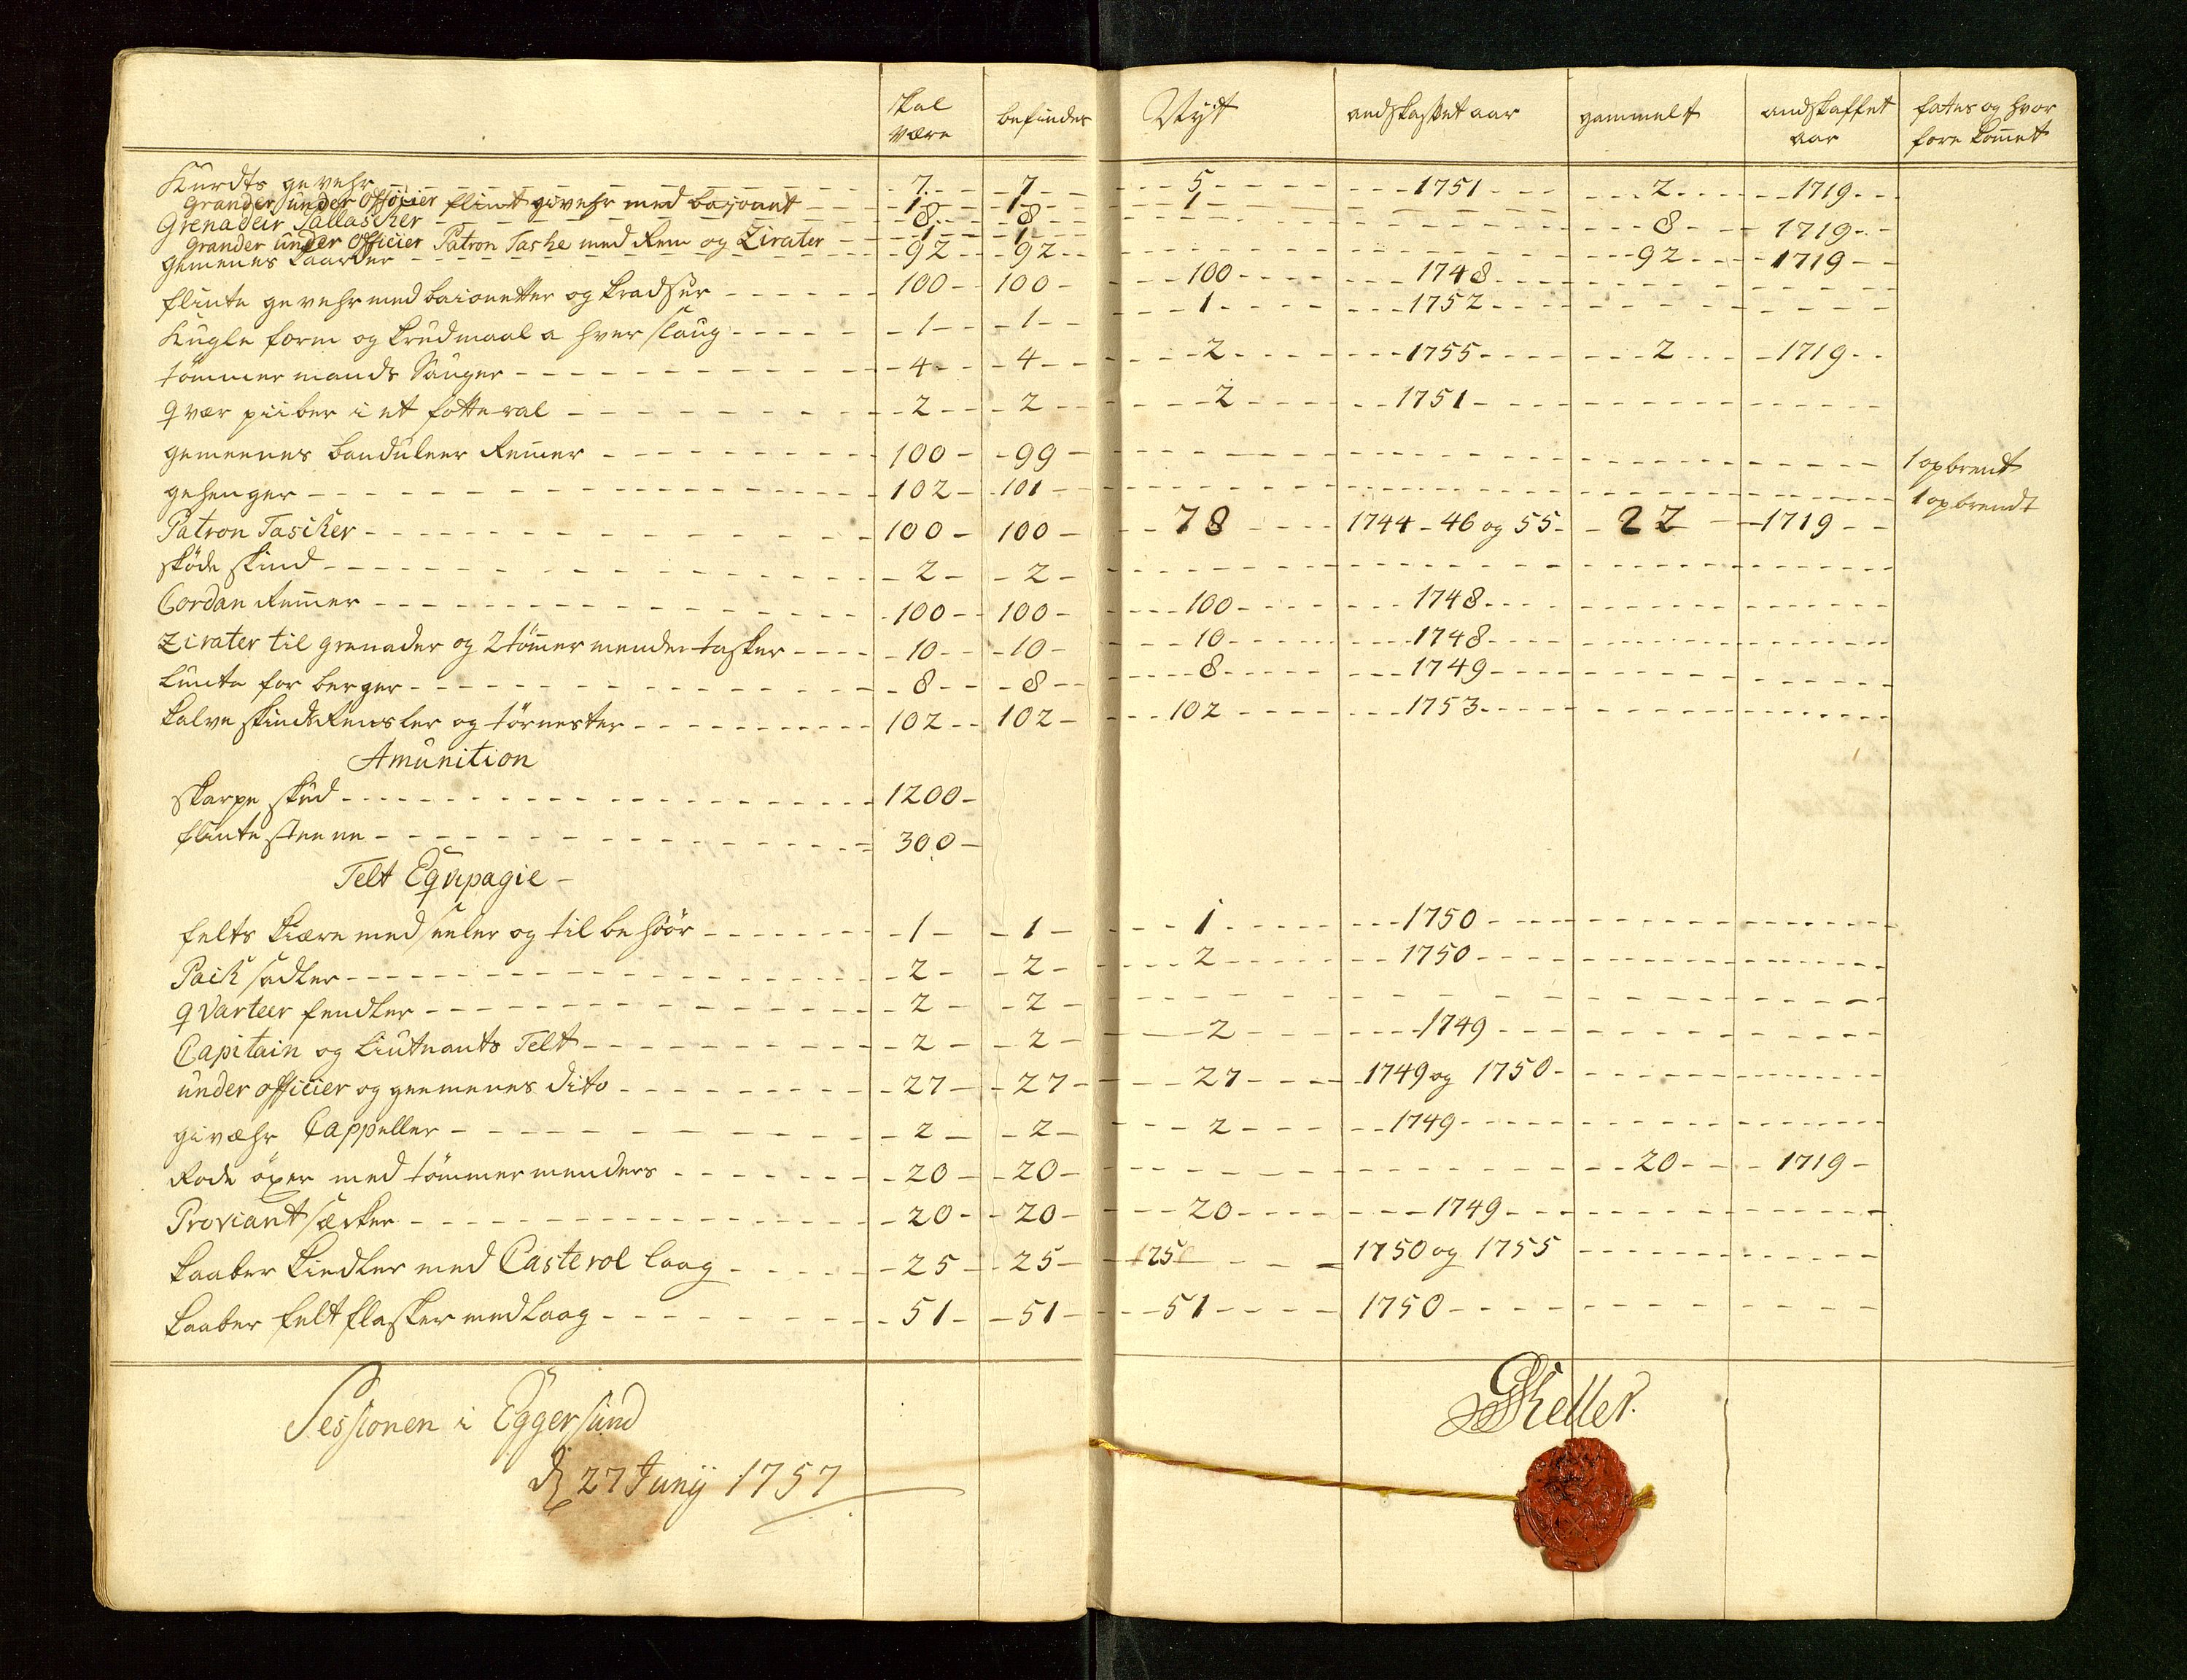 skal være befindes Nyt andskaffet aar gammelt andskaffet aar fates og hvor fore komet
Kurdts gevehr 7 7 5 1751 2 1719
Grander under Officier flint givehr med bajonet 1 1 1
Grenadeir Pallascher 8 8 8 1719
Grander under Officier Patron Tashe med Rem og Zirater 1 1
gemenes Kaarder 92 92 92 1719
flinte gevehr med baionetter og kradser 100 100 100 1748
Kugle form og krudmaal a hver slaug 1 1 1 1752
tömmermands Sauger 4 4 2 1755 2 1719
qvær piiber i et fotteral 2 2 2 1751
gemeenes banduleer Remer 100 99 1 opbrent
gehenger 102 101 1 opbrendt
Patron Tascher 100 100 78 1744-46 og 55 22 1719
sköde skind 2 2
Cordan Remer 100 100 100 1748
Zirater til grenader og 2 tömer mender tasker 10 10 10 1748
Lunte for berger 8 8 8 1749
kalve skinds Rensler og törnester 102 102 102 1753
Amunition
skarpe skud 1200
flinte steene 300
Telt Eqvipagie
felts kiære med seeler og tilbehöör 1 1 1 1750
Pack sadler 2 2 2 1750
qvarteer fendker 2 2
Capitain og Liutnants Telt 2 2 2 1749
under officier og gemenes dito 27 27 27 1749 og 1750
givæhr Cappeller 2 2 2 1749
Rode öxer med tömmermenders 20 20 20 1719
Proviant særker 20 20 20 1749
kaaber kiedler med Casterol laag 25 25 1750 og 1755
kaaber felt flasker med laag 51 51 51 1750
Sessionen i Eggersund
d 27 Junij 1757
Keller.